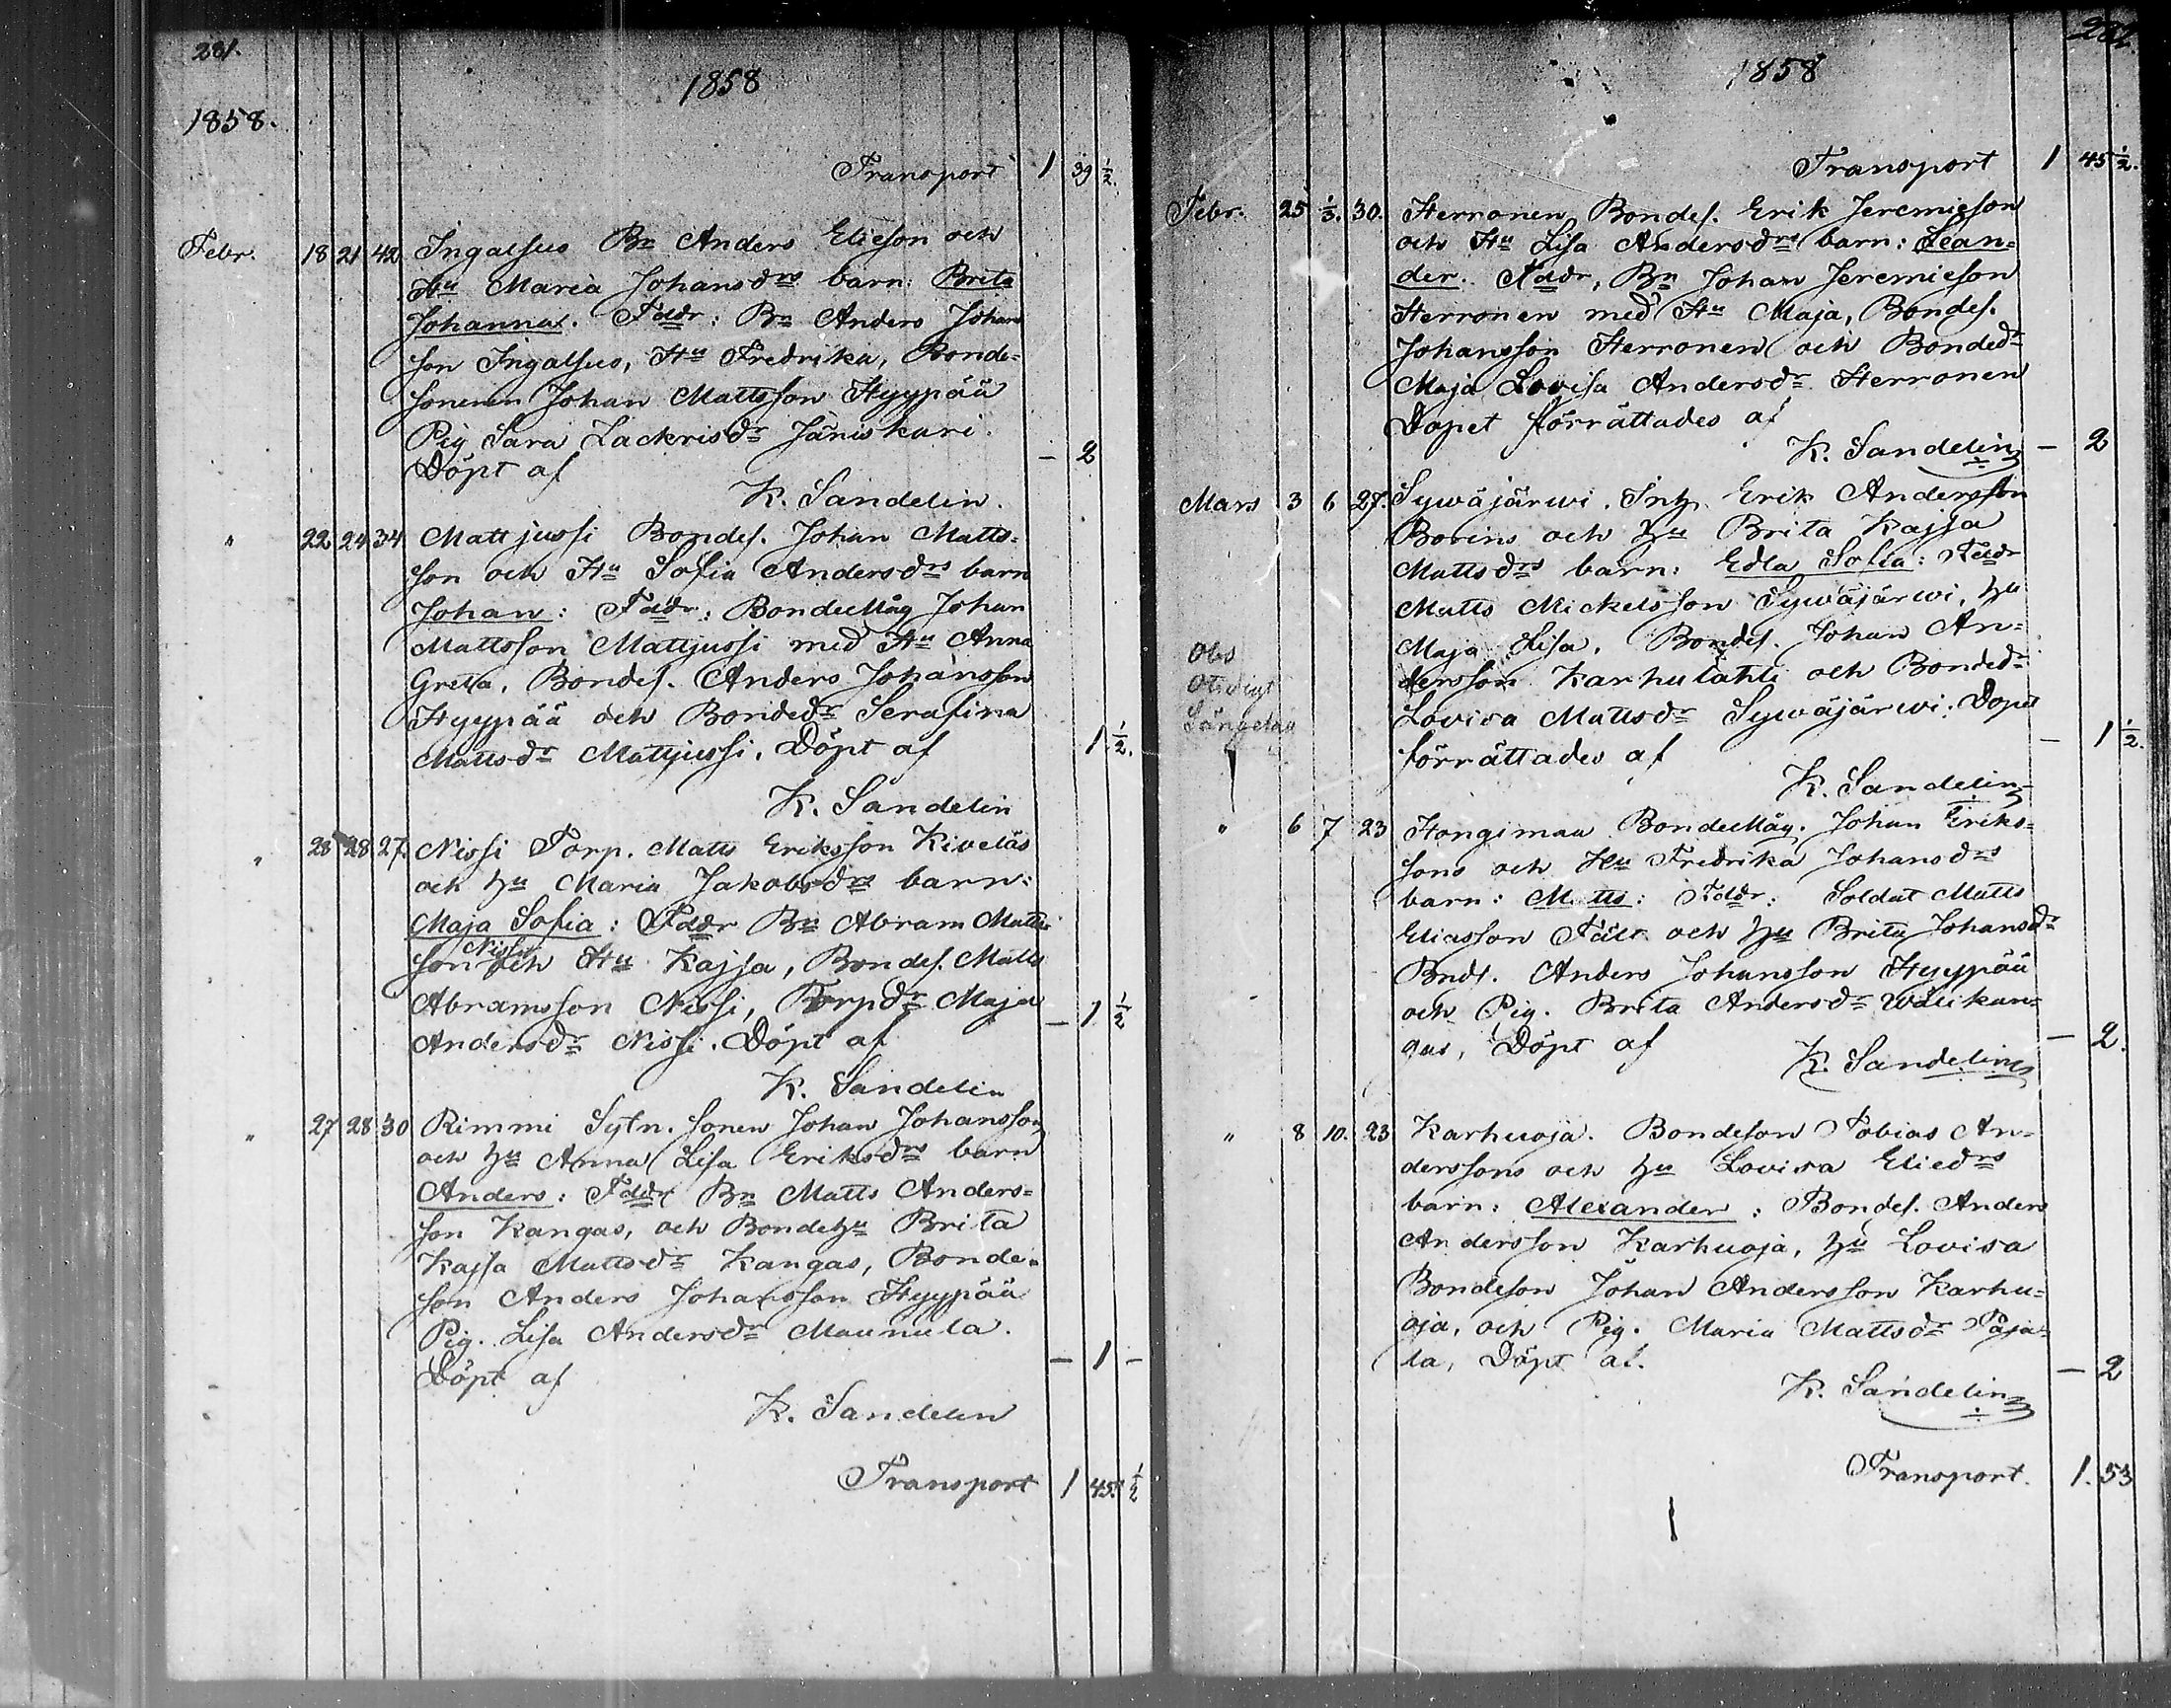 281.
1858
1858.
Transport 1 39 1/2.
Febr. 18 21 42 Ingalsuo Bn Anders Elieson och
Hu Maria Johansdrs barn: Brita
Johanna. Fddr: Bn Anders Johans
son Ingalsuo, Hu Fredrika, Bonde=
sonen Johan Mattsson Hyypää
Pig Sara Zackrisdr Jäniskari.
Döpt af — 2
K. Sandelin.
" 22 24 34 Mattjussi Bondes. Johan Matts=
son och Hu Sofia Andersdrs barn
Johan: Fddr: BondeMåg Johan
Mattsson Mattjussi med Hu Anna
Greta, Bondes. Anders Johansson
Hyypää och Bondedr Serafina
Mattsdr Mattjussi. Döpt af 1 1/2.
K. Sandelin
" 23 28 27. Nissi Torp. Matts Eriksson Kiveläs
och hu Maria Jakobsdrs barn:
Maja Sofia: Fddr Bn Abram Matts
son Nissi och Hu Kajsa, Bondes. Matts
Abramsson Nissi, Torpdr Maja
Andersdr Nissi. Döpt af — 1 1/2
K. Sandelin
" 27 28 30 Rimmi Sytn. sonen Johan Johansson
och hu Anna Lisa Eriksdrs barn
Anders: Fddr Bn Matts Anders=
son Kangas, och Bondehu Brita
Kajsa Mattsdr Kangas, Bonde=
son Anders Johansson Hyypää
Pig. Lisa Andersdr Maunula.
Döpt af — 1 —
K. Sandelin
Transport 1 45 1/2
282.
1858
Transport 1 45 1/2.
Febr. 25 1/3. 30. Herronen Bondes. Erik Jeremieson
och Hu Lisa Andersdrs barn: Lean=
der. Fddr, Bn Johan Jeremieson
Herronen med Hu Maja, Bondes.
Johansson Herronen och Bondedr
Maja Lovisa Andersdr Herronen
Dopet förrättades af
K. Sandelin — 2
Mars 3 6 27. Sywäjärwi. Inh. Erik Andersson
Borins och hu Brita Kajsa
Mattsdrs barn: Edla Sofia: Fddr
Matts Mickelsson Sywäjärwi, hu
Maja Lisa, Bondes. Johan An=
Obs
dersson Karhulahti och Bondedr
Lovisa Mattsdr Sywäjärwi: Dopet
förrättades af — 1 1/2.
K. Sandelin
" 6 7 23 Hongimaa BondeMåg. Johan Eriks=
sons och Hu Fredrika Johansdrs
barn: Matts: Fddr: Soldat Matts
Eliasson Fält och hu Brita Johansdr
Bnds. Anders Johansson Hyypää
och Pig. Brita Andersdr Wälikan=
gas, Döpt af — 2.
K. Sandelin
" 8 10. 23 Karhuoja. Bondeson Tobias An=
derssons och hu Lovisa Eliedrs
barn: Alexander: Bondes. Anders
Andersson Karhuoja, hu Lovisa
Bondeson Johan Andersson Karhu=
oja, och Pig. Maria Mattsdr Paja=
la, Döpt af. — 2
K. Sandelin
Transport. 1. 53